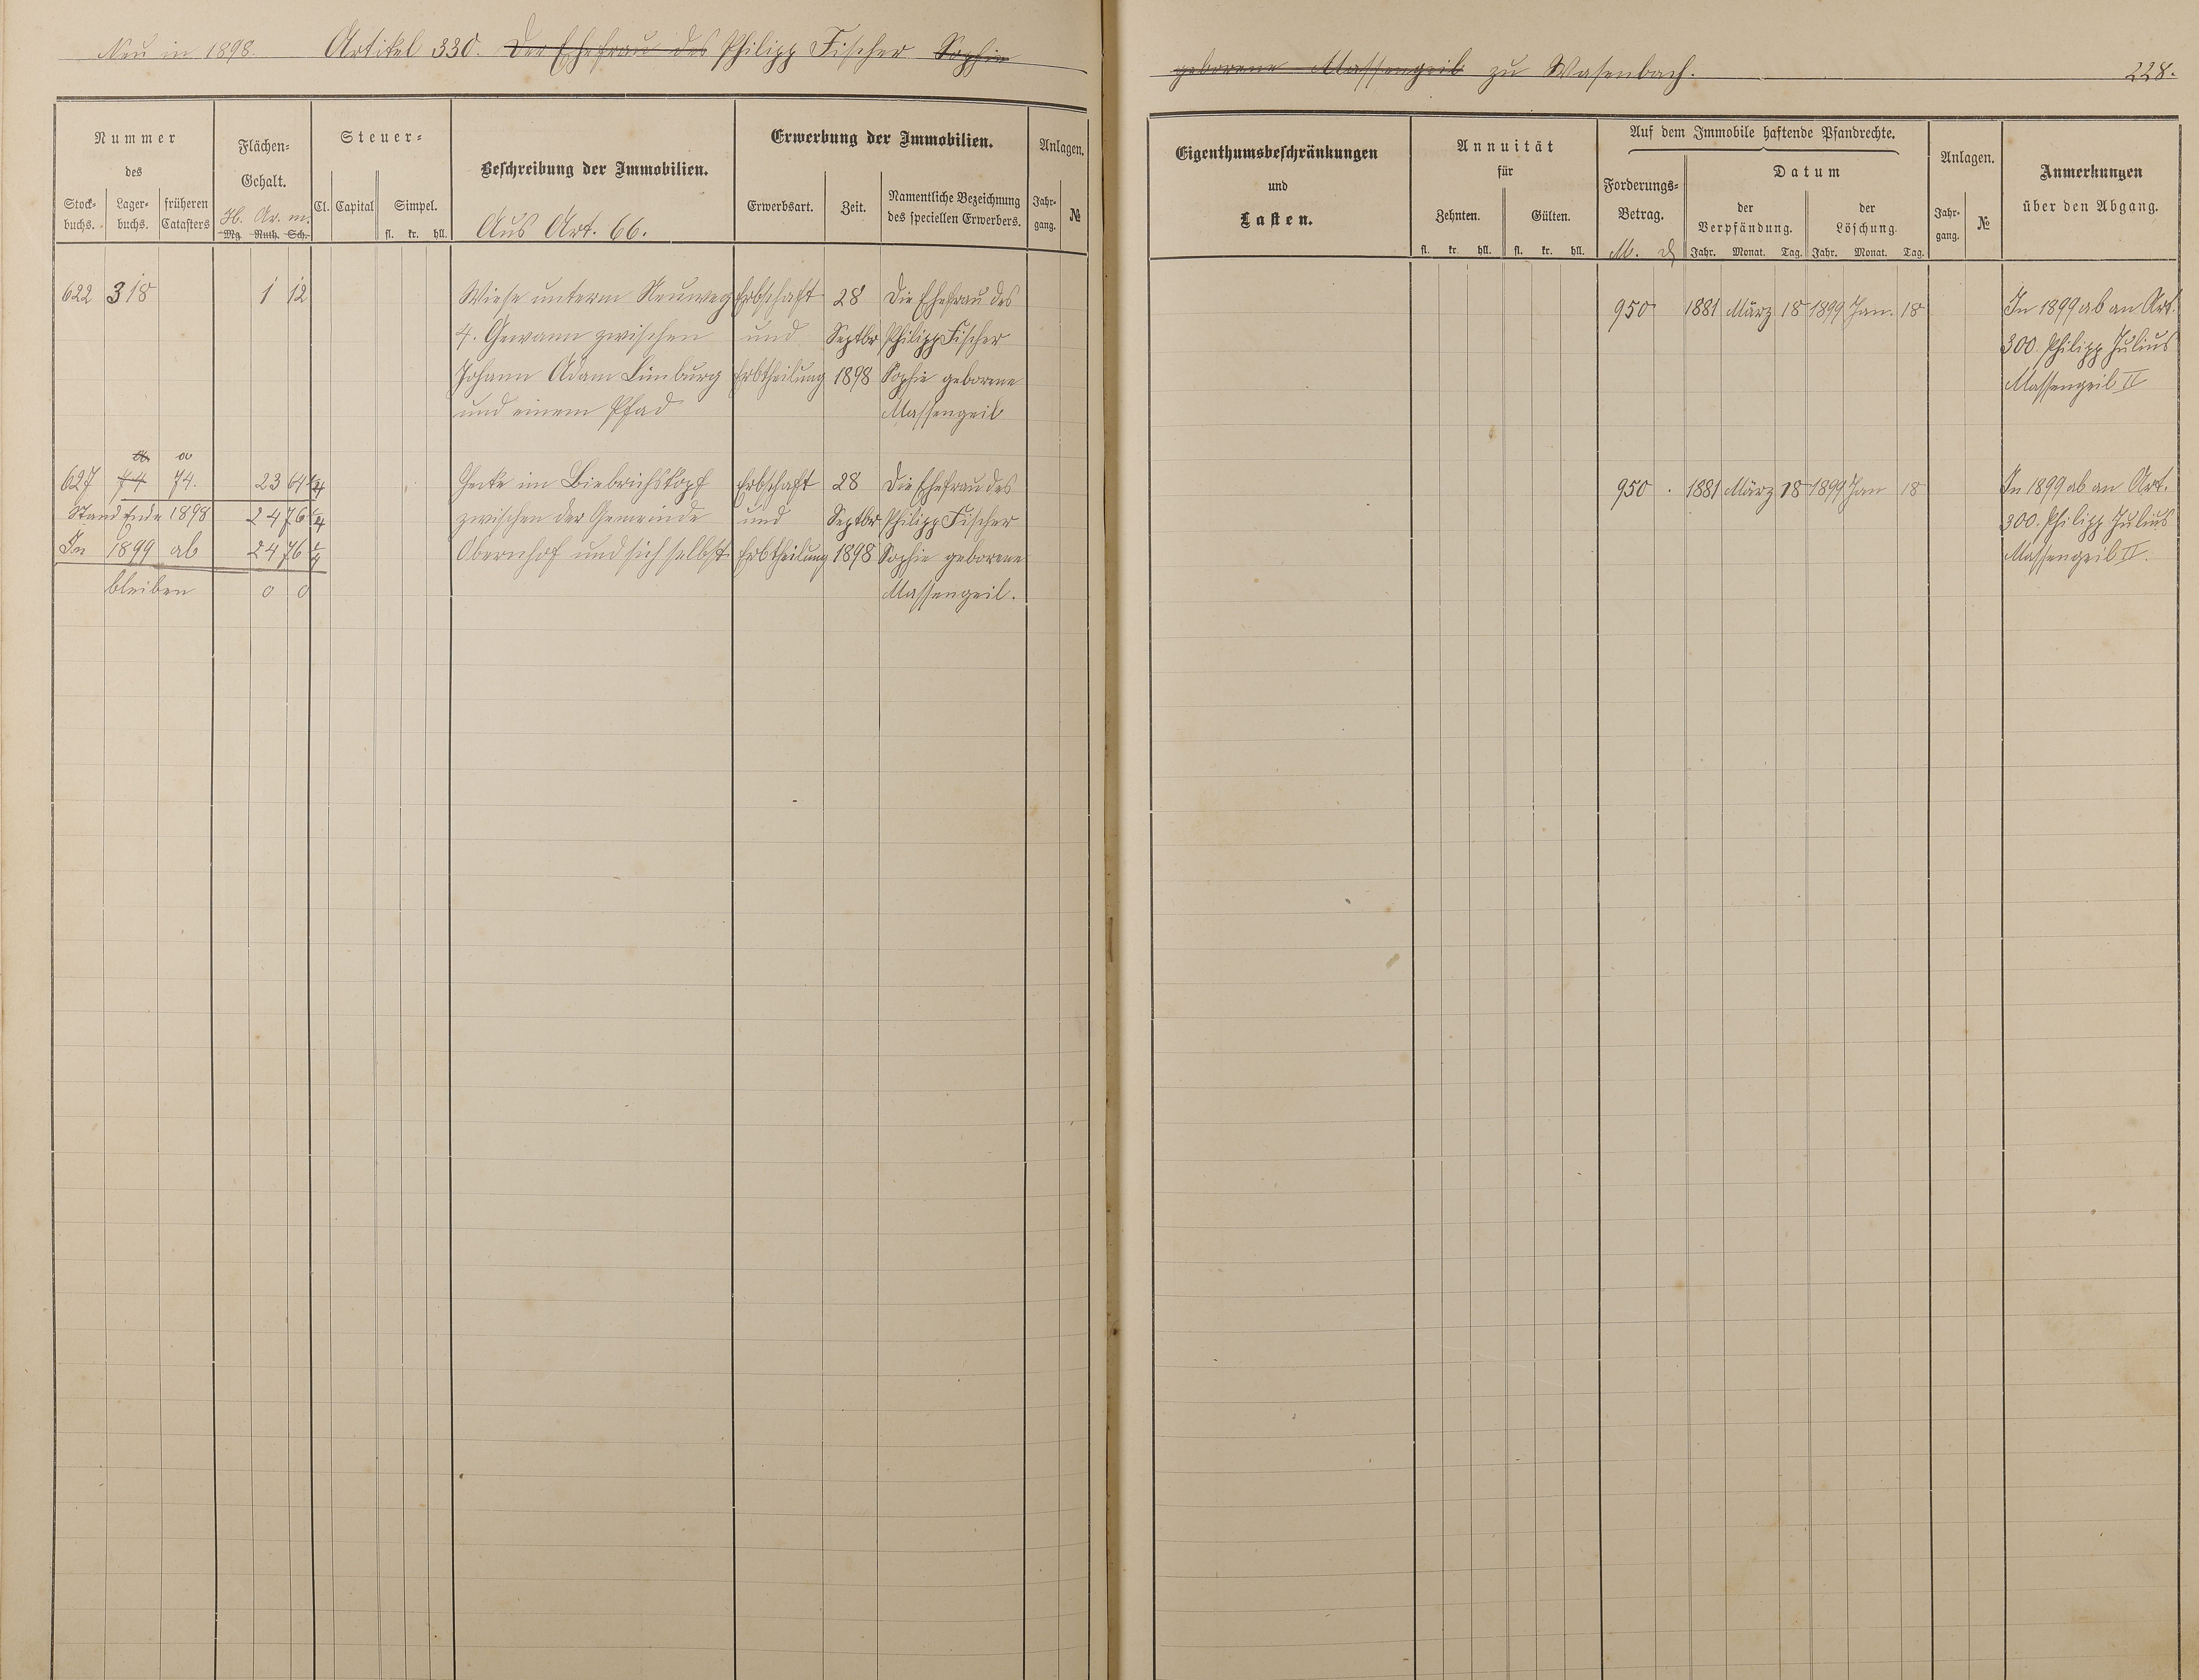 Neu in 1898. Artikel 330. Der Ehefrau des Philipp Fischer Sophie
geborene Massengeil zu Wasenbach. 228.
Nummer
des
Stock-
buchs.
Lager-
buchs.
früheren
Catasters
Flächen-
Gehalt.
H. Ar. m.
Mg. Ruth. Sch.
Steuer-
Cl. Capital Simpel.
fl. kr. hll.
Beschreibung der Immobilien.
Aus Art. 66.
Erwerbung der Immobilien.
Erwerbsart. Zeit.
Namentliche Bezeichnung
des speciellen Erwerbers.
Anlagen.
Jahr-
gang.
№
Eigenthumsbeschränkungen
und
Lasten.
Annuität
für
Zehnten. Gülten.
fl. kr. hll. fl. kr. hll.
Auf dem Immobile haftende Pfandrechte.
Forderungs-
Betrag.
M.
Datum
der
Verpfändung.
der
Löschung
Jahr. Monat. Tag. Jahr. Monat. Tag.
Anlagen.
Jahr-
gang.
№
Anmerkungen
über den Abgang.
622 318 1 12 Wiese unterm Neuweg Erbschaft 28 Die Ehefrau des
4. Gewann zwischen und Septbr Philipp Fischer
Johann Adam Limburg Erbtheilung 1898 Sophie geborene
und einem Pfad Massengeil
950 1881 März 18 1899 Jan. 18 In 1899 ab an Art.
300. Philipp Julius
Massengeil II
a a
627 74 74. 23 64 Hecke im Biebrichskopf Erbschaft 28 Die Ehefrau des
Stand Ende 1898 24 76 zwischen der Gemeinde und Septbr Philipp Fischer
In 1899 ab 24 76 Obernhof und sich selbst Erbtheilung 1898 Sophie geborene
bleiben 0 0 Massengeil.
950 . 1881 März 18 1899 Jan 18 In 1899 ab an Art.
300. Philipp Julius
Massengeil II.